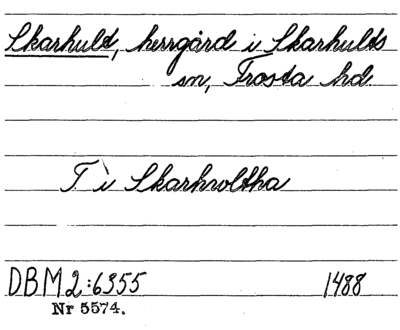 Skarhult, herrgård i Skarhults
sn, Frosta hd.
T. i Skarhwoltha
DBM 2:6355 1488
Nr 5574.